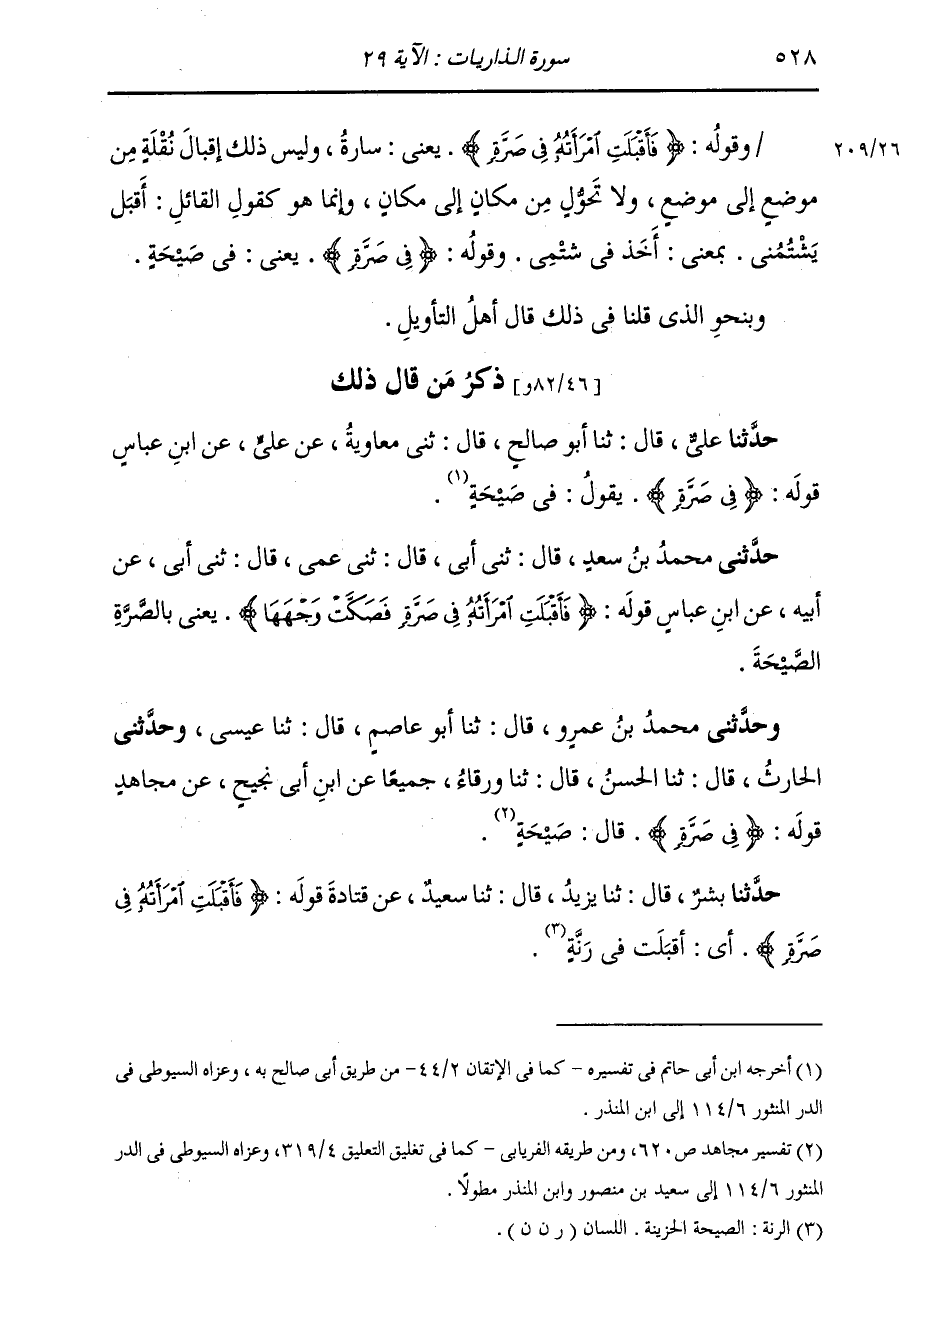 ٥٢٨ سورة الذاريات : الآية ٢٩
٢٠٩/٢٦ / وقولُه : ﴿ فَأَقْبَلَتِ ٱمْرَأَتُهُ فِى صَرَّةٍ ﴾ . يعنى : سارةُ ، وليس ذلك إقبالَ نُقْلَةٍ مِن
موضعٍ إلى موضعٍ ، ولا تَحَوُّلٍ مِن مكانٍ إلى مكانٍ ، وإنما هو كقولِ القائلِ : أَقبَل
يَشْتُمُنى . بمعنى : أَخَذ فى شتْمِى . وقولُه : ﴿ فِى صَرَّةٍ ﴾ . يعنى : فى صَيْحَةٍ .
وبنحوِ الذى قلنا فى ذلك قال أهلُ التأويلِ .
[٨٢/٤٦و] ذكرُ مَن قال ذلك
حدَّثنا علىٌّ ، قال : ثنا أبو صالحٍ ، قال : ثنى معاويةُ ، عن علىٍّ ، عن ابنِ عباسٍ
قولَه : ﴿ فِى صَرَّةٍ ﴾ . يقولُ : فى صَيْحَةٍ(١) .
حدَّثنى محمدُ بنُ سعدٍ ، قال : ثنى أبى ، قال : ثنى عمى ، قال : ثنى أبى ، عن
أبيه ، عن ابنِ عباسٍ قولَه : ﴿ فَأَقْبَلَتِ ٱمْرَأَتُهُ فِى صَرَّةٍ فَصَكَّتْ وَجْهَهَا ﴾ . يعنى بالصَّرَّةِ
الصَّيْحَةَ .
وحدَّثنى محمدُ بنُ عمرٍو ، قال : ثنا أبو عاصمٍ ، قال : ثنا عيسى ، وحدَّثنى
الحارثُ ، قال : ثنا الحسنُ ، قال : ثنا ورقاءُ ، جميعًا عن ابنِ أبى نجيحٍ ، عن مجاهدٍ
قولَه : ﴿ فِى صَرَّةٍ ﴾ . قال : صَيْحَةٍ(٢) .
حدَّثنا بشرٌ ، قال : ثنا يزيدُ ، قال : ثنا سعيدٌ ، عن قتادةَ قولَه : ﴿ فَأَقْبَلَتِ ٱمْرَأَتُهُ فِى
صَرَّةٍ ﴾ . أى : أقبَلَت فى رَنَّةٍ(٣) .
(١) أخرجه ابن أبى حاتم فى تفسيره - كما فى الإتقان ٤٤/٢ - من طريق أبى صالح به ، وعزاه السيوطى فى
الدر المنثور ١١٤/٦ إلى ابن المنذر .
(٢) تفسير مجاهد ص٦٢٠، ومن طريقه الفريابى - كما فى تغليق التعليق ٣١٩/٤، وعزاه السيوطى فى الدر
المنثور ١١٤/٦ إلى سعيد بن منصور وابن المنذر مطولًا .
(٣) الرنة : الصيحة الحزينة . اللسان ( ر ن ن ) .